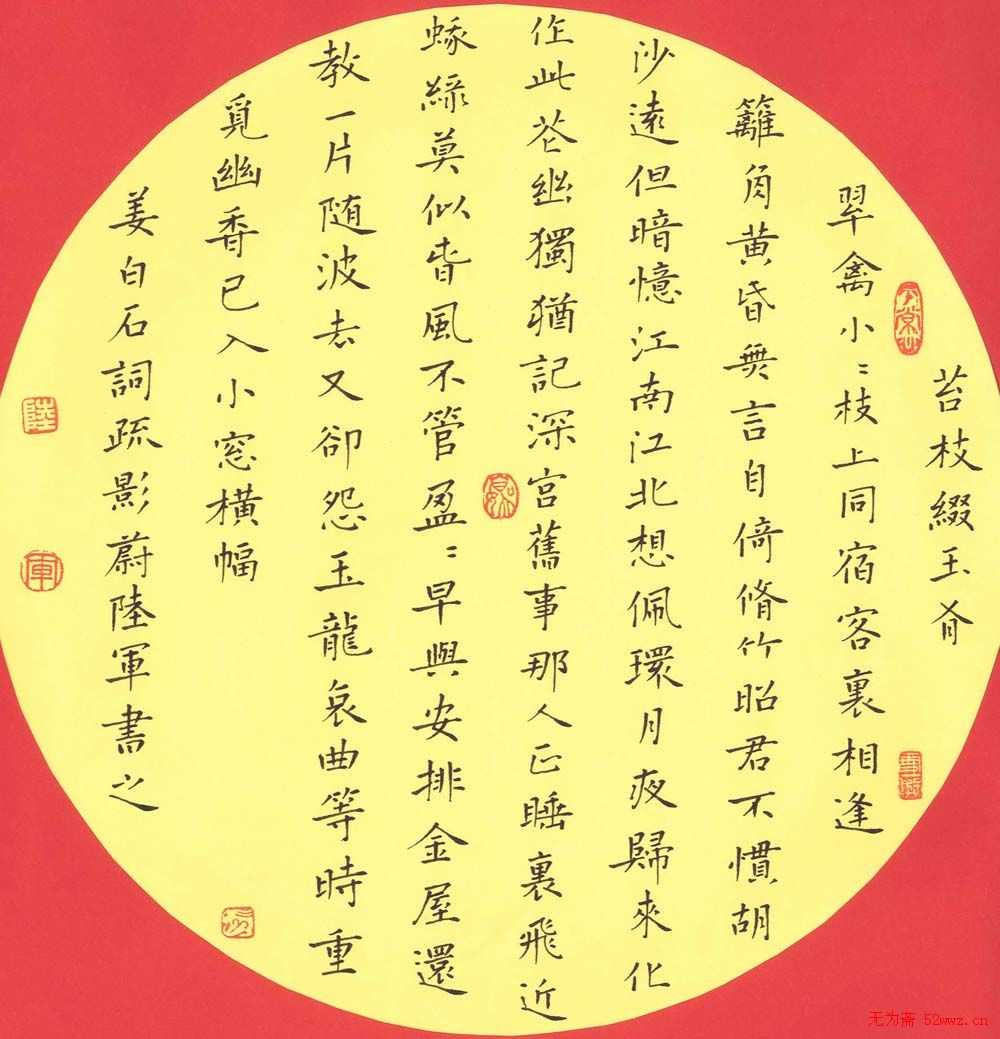 苔枝綴玉有
翠禽小〻枝上同宿客裏相逢
籬角黃昏無言自倚脩竹昭君不慣胡
沙遠但暗憶江南江北想佩環月夜歸來化
作此花幽獨猶記深宮舊事那人正睡裏飛近
蛾綠莫似春風不管盈〻早與安排金屋還
教一片随波去又卻怨玉龍哀曲等時重
覓幽香已入小窓橫幅
姜白石詞疏影蔚陸軍書之
陸
軍
无为斋 52wwz.cn